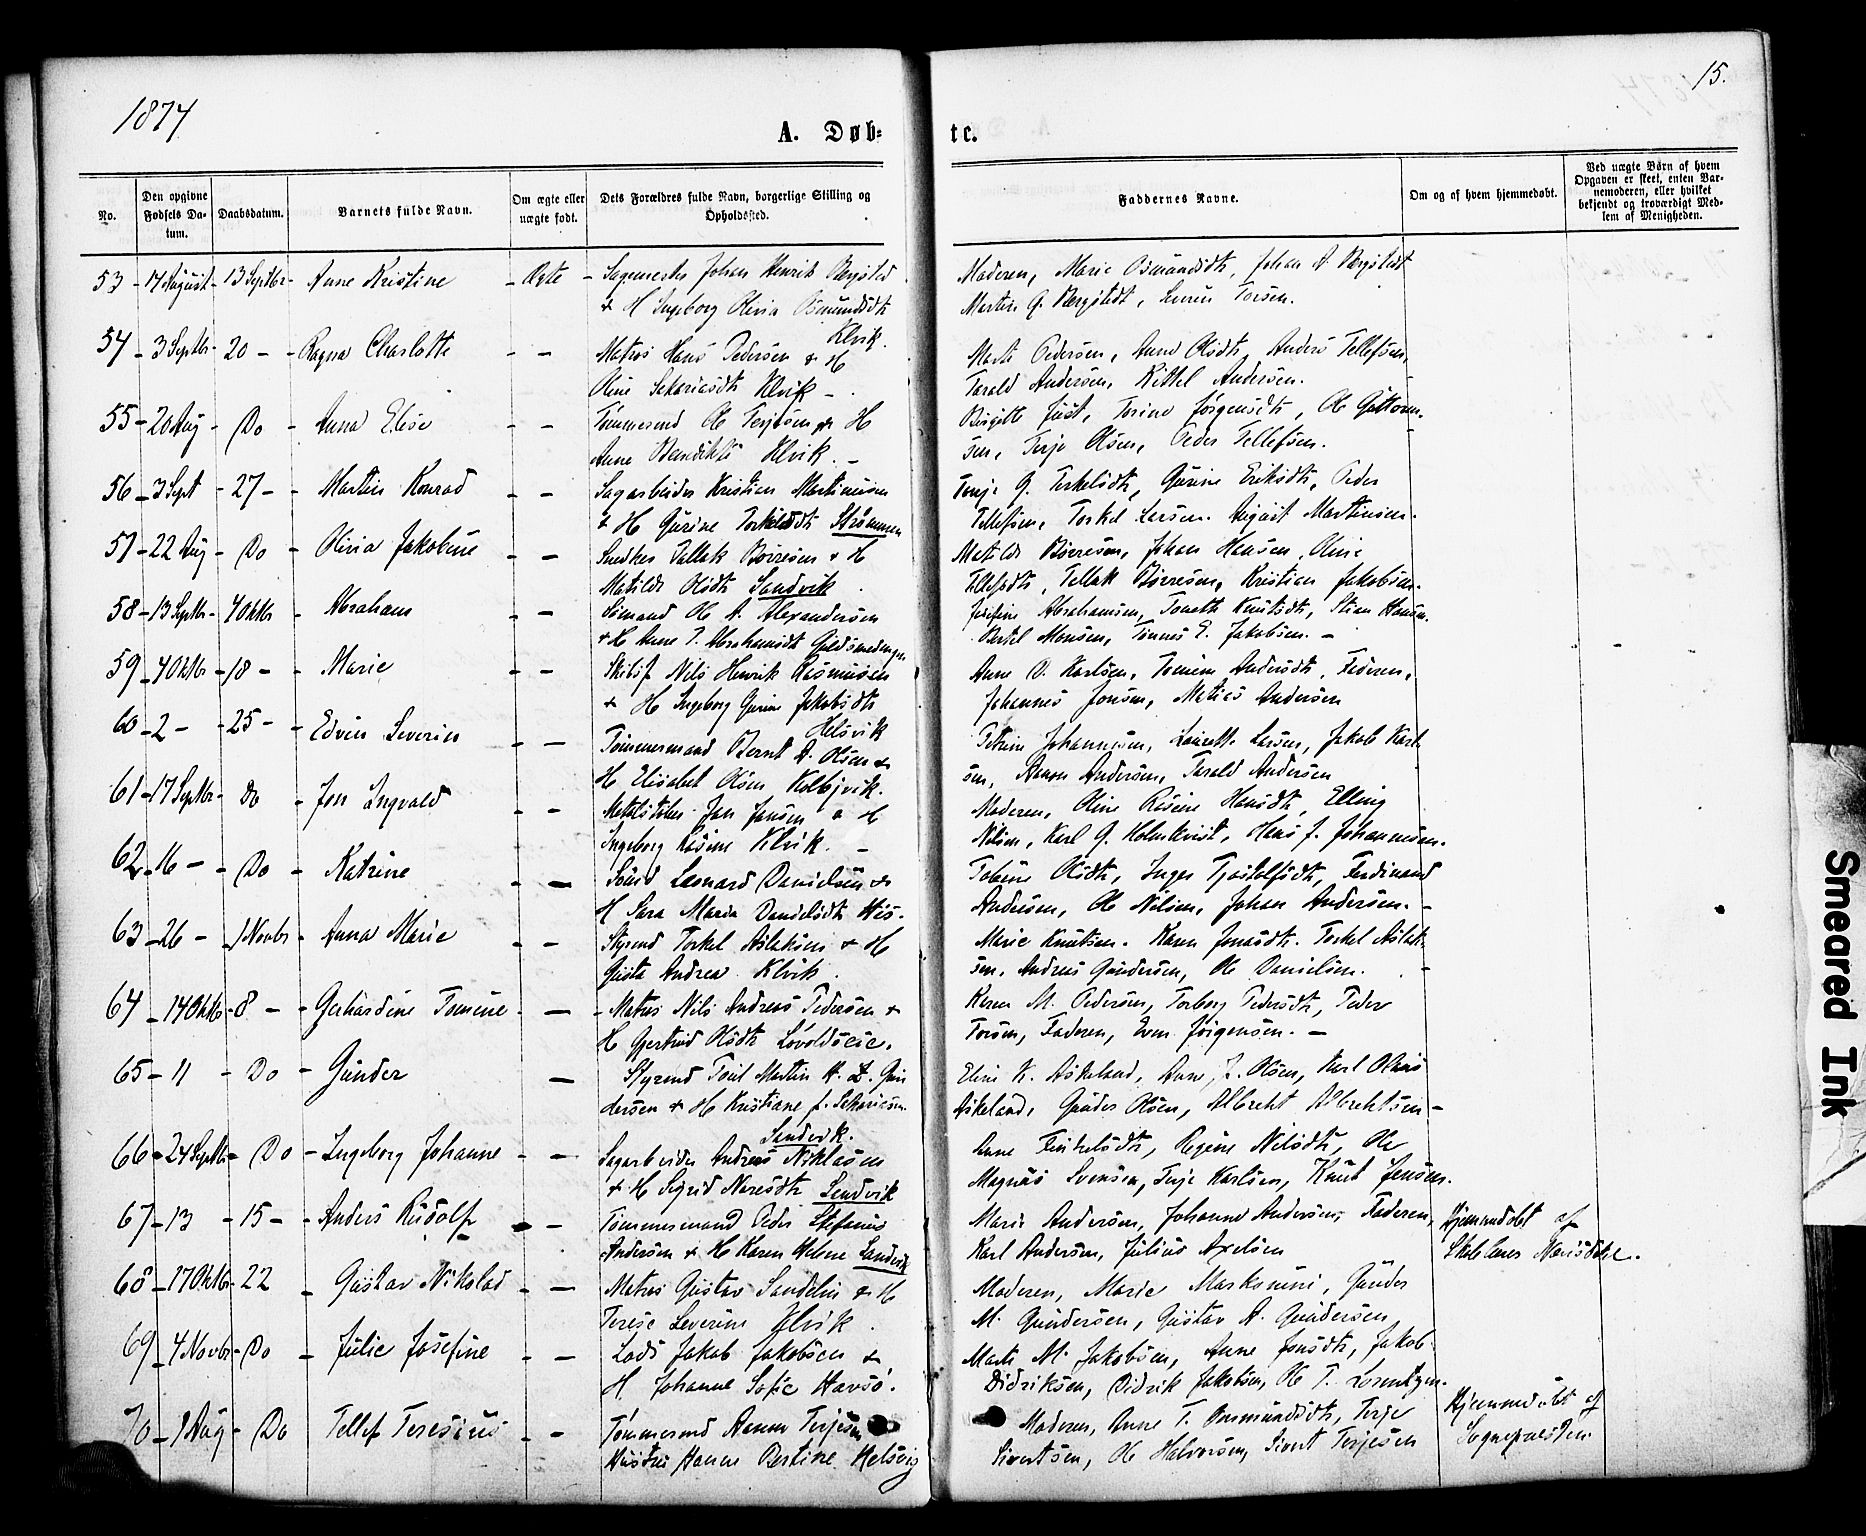 1874
15.
A. Døb-
te.
No.
Den opgivne Fødsels Da-
tum.
Daabsdatum.
Barnets fulde Navn.
Om ægte eller
uægte født.
Dets Forældres fulde Navn, borgerlige Stilling og
Opholdssted.
Faddernes Navne.
Om og af hvem hjemmedøbt.
Ved uægte Børn af hvem
Opgaven er skeet, enten Bar-
nemoderen, eller hvilket
bekjendt og troværdigt Med-
lem af Menigheden.
53 - 14 August - 13 Septbr - Anne Kristine - Ægte - Johan Henrik Bergsted
& H Ingeborg Olivia Osmundsdt
Klvik.
Moderen, Marie Osmundsdt, Johan A Bergstedt
Martin G. Bergstedt, Torsen.
54 - 3 Septbr - 20 - - Ragna Charlotte - - Matros Hans Pedersen & H
Oline Sakariasdt Klvik -
Pedersen, Anne Olsdt, Anders Tellefsen,
Tarald Andersen, Kittel Andersen.
55 - 20 Aug - Do - Anna Elise - - Tømmermd Ole Terjesen & H
Anne Klvik. -
Birgitte Just, Jørgensdt, Ole Guttorm-
sen, Terje Olsen, Peder Tellefsen.
56 - 3 Sept - 27 - - Martin Konrad - - Sagarbeider Kristian Martinsen
& H Gurine Torkildsdt Strømmen
G. Terkelsdt, Gurine Eriksdt, Peder
Tellefsen, Torkel Larsen. August Martinsen.
57 - 22 Aug - Do - Olivia Jakobine - - Snedker Tellak Børresen & H
Matilde Olsdt Sandvik
Matilde Børresen, Johan Hansen, Oline
Tellefsdt, Tellak Børresen, Kristian Jakobsen.
58 - 13 Septbr - 4 Oktbr - Abraham - - Sømand Ole A. Alexandersen
& H Anne T. Abrahamsdt
Josefine Abrahamsen, Tonette Knutsdt, Stian Hansen.
Bertel Monsen, Tønnes E. Jakobsen. -
59 - 4 Oktbr - 18 - - Marie - - Skibsf Nils Henrik Rasmusen
& H Ingeborg Gurine Jakobsdt
Helsvik
Anne B. Karlsen, Andersdt, Faderen,
Johannes Jonsen, Matias Andersen
60 - 2 - - 25 - - Edvin Severin - - Tømmermand Bernt A. Olsen &
H Elisabet Olsen Kolbjvik.
Petrine Johannesen, Laurette Larsen, Jakob Karl-
sen, Aanon Andersen, Tarald Andersen
61 - 17 Septbr - Do - Jon Ingvald - - Jon Jansen & H
Ingeborg Klvik. -
Moderen, Oline Hansdt, Elling
Nilsen, Karl G. Holmkvist, Hans J. Johannesen.
62 - 16 - - Do - Katrine - - Sømd Leonard Danielsen &
H Sara Maria Danielsdt His.
Tobine Olsdt, Inger Tjøstolfsdt, Ferdinand
Andersen, Ole Nilsen, Johan Andersen. -
63 - 26 - - 1 Novbr - Anna Marie - - Styrmd Torkel Aslaksen & H
Gusta Andrea Klvik.
Marie Knutsen. Karen Jonasdt. Torkel Aslak-
sen. Andreas Gundersen, Ole Danielsen. -
64 - 14 Oktbr - 8 - - Gerhardine Tomine - - - Matros Nils Andreas Pedersen &
H Gjertrud Olsdt
Karen M. Pedersen, Torborg Pedersdt, Peder
Torsen, Faderen, Even Jørgensen. -
65 - 11 - Do - Gunder - Styrmd Martin A. Gun
dersen & H Kristiane J. Sakariasen
Sandvik.
Eline K. Askeland, Anne J. Olsen, Karl
Askeland, Gunder Olsen, Albrekt Albrektsen -
66 - 24 Septbr - Do - Ingeborg Johanne - - Sagarbeider Andreas Niklasen
& H Sigrid Sandvik
Anne Terkelsdt, Regine Nilsdt, Ole
Magnus Svensen, Terje Karlsen, Knut Jensen.
67 - 13 - 15 - - Anders Rudolf - - Tømmermand Peder Stefanus
Andersen & H Karen Helene Sandvik
Marie Andersen, Johanne Andersen, Faderen,
Karl Andersen, Julius Axelsen
Hjemmedøbt af
68 - 17 Oktbr - 22 - Gustav Nikolai - - Matros Gustav Sandelin & H
Terese Severine Klvik.
Moderen, Marie Gunder
M. Gundersen, Gustav A. Gundersen
69 - 4 Novbr - Do - Julie Josefine - - Lods Jakob Jakobsen &
H Johanne Sofie Havsø.
M. Jakobsen, Anne Jonsdt, Jakob
Didriksen, Didrik Jakobsen, Ole T. Lorentzen.
70 - 1 Aug - Do - Tellef Teresius - - Tømmermd Aanon Terjesen
Hustru Hanne Bertine Helsvig
Moderen, Anne T. Osmundsdt, Terje
Sivertsen, Ole Halvorsen, Sivert Terjesen
Hjemmedøbt af
Sognepræsten.
Smeared Ink